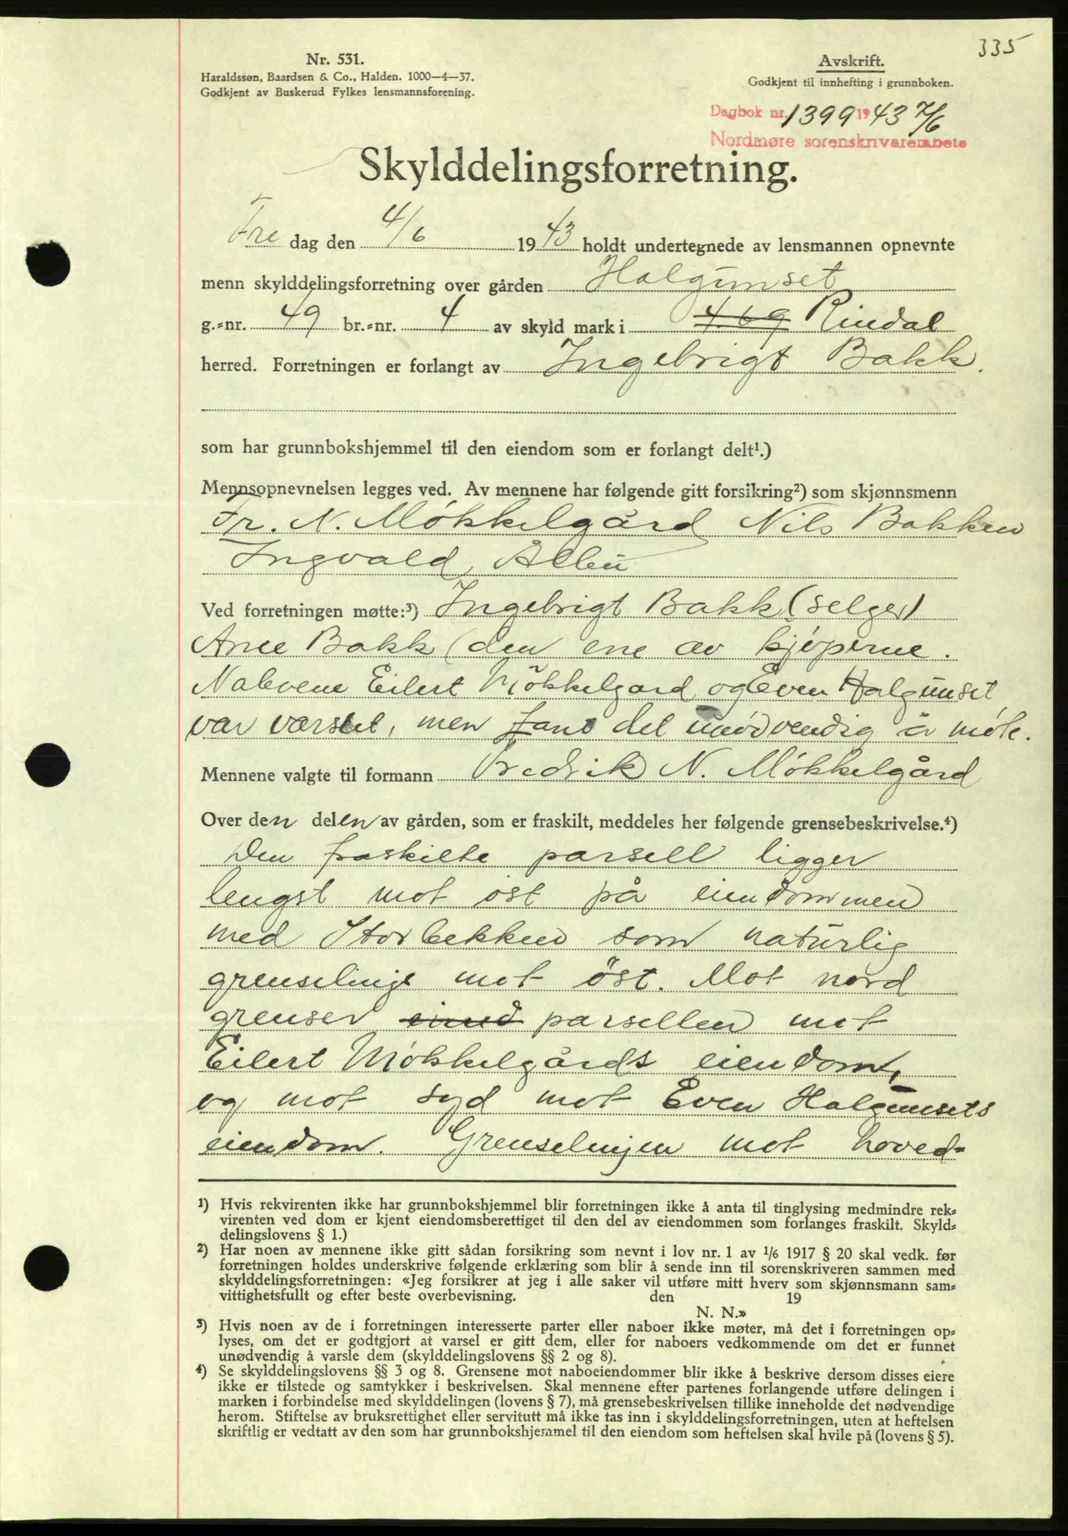 335
Nr. 531.
Haraldssøn, Baardsen & Co., Halden. 1000—4—37.
Godkjent av Buskerud Fylkes lensmannsforening.
Avskrift.
Godkjent til innhefting i grunnboken.
Dagbok nr. 1399 1943 7/6
Nordmøre sorenskriverembete
Skylddelingsforretning.
Fre dag den 4/6 1943 holdt undertegnede av lensmannen opnevnte
menn skylddelingsforretning over gården Halgunset
g.=nr. 49 br.=nr. 4 av skyld mark i 4.69 Rindal
herred. Forretningen er forlangt av Ingebrigt Bakk.
som har grunnbokshjemmel til den eiendom som er forlangt delt¹.)
Mennsopnevnelsen legges ved. Av mennene har følgende gitt forsikring²) som skjønnsmenn
Fr. N. Møkkelgård Nils Bakken
Ingvald
Ved forretningen møtte:³) Ingebrigt Bakk (selger)
Arne Bakk (den ene av kjøperne.
Naboene Eilert Møkkelgard og Even Halgunset
var varslet, men fant det unødvendig å møte.
Mennene valgte til formann Fredrik N. Møkkelgård
Over den delen av gården, som er fraskilt, meddeles her følgende grensebeskrivelse.⁴)
Den fraskilte parsell ligger
lengst mot øst på eiendommen
med Storbekken som naturlig
grenselinje mot öst. Mot nord
grenser parsellen mot
Eilert Møkkelgårds eiendom,
og mot syd mot Even Halgunsets
eiendom. Grenselinjen mot hoved=
¹) Hvis rekvirenten ikke har grunnbokshjemmel blir forretningen ikke å anta til tinglysing medmindre rek=
virenten ved dom er kjent eiendomsberettiget til den del av eiendommen som forlanges fraskilt. Skyld=
delingslovens § 1.)
²) Har noen av mennene ikke gitt sådan forsikring som nevnt i lov nr. 1 av 1/6 1917 § 20 skal vedk. før
forretningen holdes underskrive følgende erklæring som blir å sende inn til sorenskriveren sammen med
skylddelingsforretningen: «Jeg forsikrer at jeg i alle saker vil utføre mitt hverv som skjønnsmann sam=
vittighetsfullt og efter beste overbevisning. den 19
N. N.»
³) Hvis noen av de i forretningen interesserte parter eller naboer ikke møter, må det i forretningen op=
lyses, om det er godtgjort at varsel er gitt dem, eller for naboers vedkommende om det er funnet
unødvendig å varsle dem (skylddelingslovens §§ 2 og 8).
⁴) Se skylddelingslovens §§ 3 og 8. Grensene mot naboeiendommer blir ikke å beskrive dersom disses eiere
ikke er tilstede og samtykker i beskrivelsen. Skal mennene efter partenes forlangende utføre delingen i
marken i forbindelse med skylddelingen (lovens § 7), må grensebeskrivelsen tillike inneholde det nødvendige
herom. Stiftelse av bruksrettighet eller servitutt må ikke tas inn i skylddelingsforretningen, uten at heftelsen
skriftlig er vedtatt av den som har grunnbokshjemmel til den eiendom som heftelsen skal hvile på (lovens § 5).